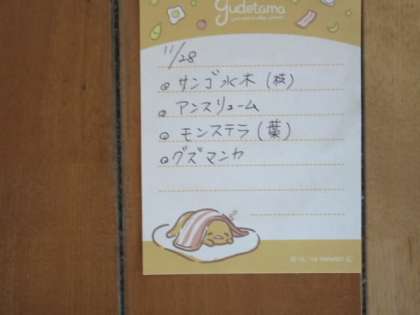 gudetama
11/28
◎ サンゴ水木(枝)
◎ アンスリューム
◎ モンステラ(葉)
◎ グズマンカ